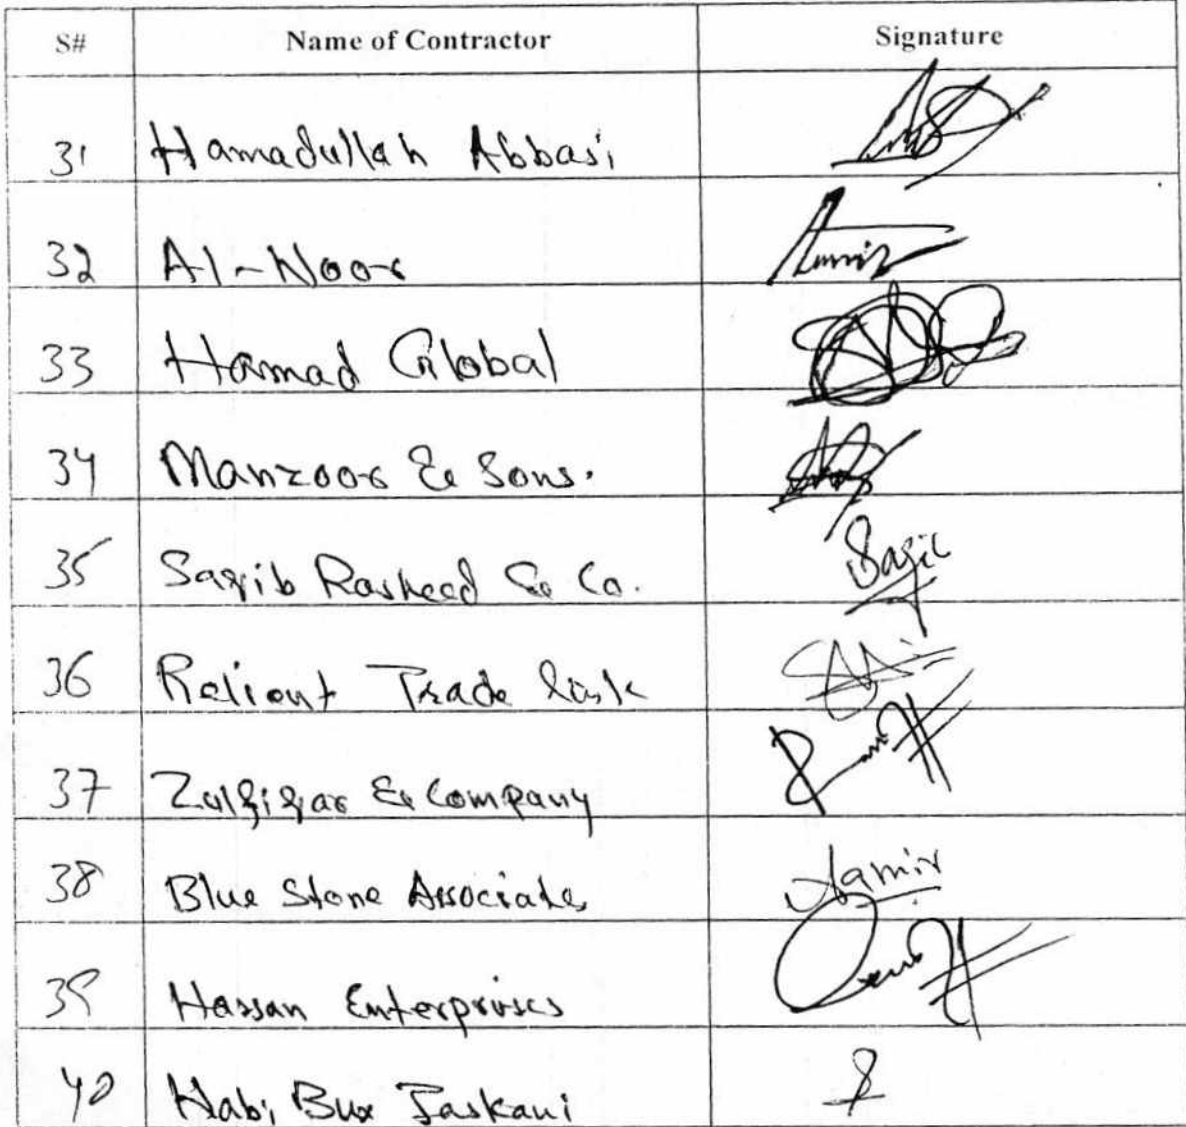 S# Name of Contractor Signature
31 Hamadullah Abbasi
32 Al-Noor
33 Hamad Global
34 Manzoor & Sons.
35 Saqib Rasheed & Co. Saqib
36 Relient Trade Link
37 Zulfiqar & Company
38 Blue Stone Associates Aamir
39 Hassan Enterprises
40 Nabi Bux Jaskani